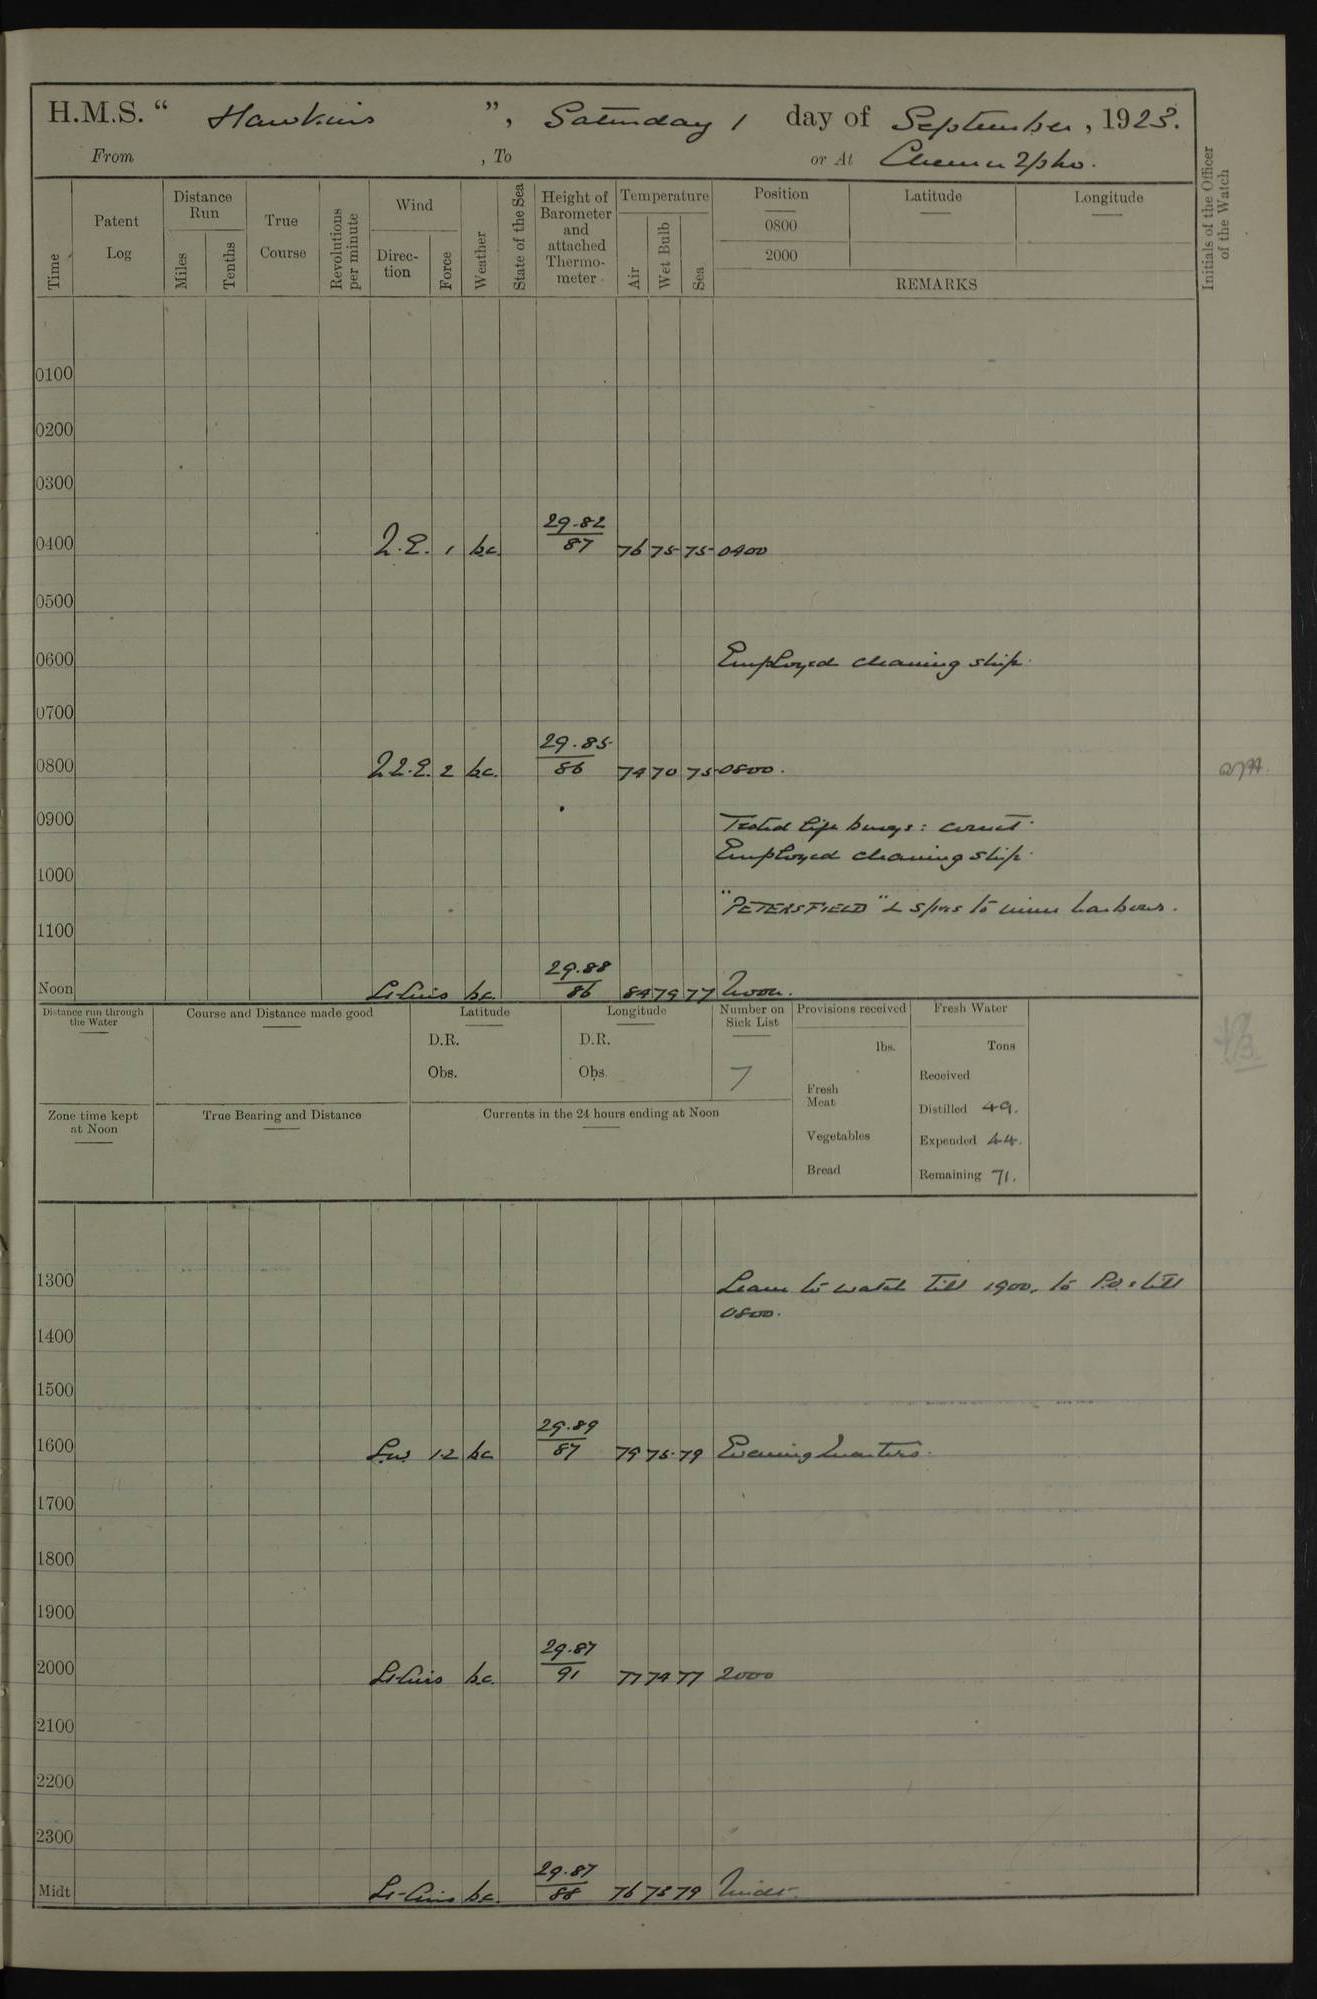 H.M.S. " Hawkins ", Saturday 1 day of September, 1923.
From , To or At Chemulpho.
Time
Patent Log
Distance Run
Miles
Tenths
True Course
Revolutions per minute
Wind
Direction
Force
Weather
State of the Sea
Height of Barometer and attached Thermometer
Temperature
Air
Wet Bulb
Sea
Position
0800
2000
Latitude
Longitude
REMARKS
Initials of the Officer of the Watch
0100
0200
0300
0400 N.E. 1 bc. 29.82/87 76 75 75 0400
0500
0600 Employed cleaning ship.
0700
0800 N.N.E. 2 bc. 29.85/86 74 70 75 0800.
0900 Tested life buoys: correct.
Employed cleaning ship.
1000
"PETERSFIELD" to inner harbour.
1100
Noon Lt. Airs bc. 29.88/86 84 79 77 Noon.
Distance run through the Water
Course and Distance made good
Latitude
D.R.
Obs.
Longitude
D.R.
Obs.
Number on Sick List
7
Provisions received
lbs.
Fresh Meat
Vegetables
Bread
Fresh Water
Tons
Received
Distilled 49.
Expended 44.
Remaining 71.
Zone time kept at Noon
True Bearing and Distance
Currents in the 24 hours ending at Noon
1300 Leave to watch till 1900, to P.O.s till
0800.
1400
1500
1600 S.W. 1-2 bc 29.89/87 79 75 79 Evening Quarters.
1700
1800
1900
2000 Lt Airs bc. 29.87/91 77 74 77 2000
2100
2200
2300
Midt Lt-Airs bc. 29.87/88 76 73 79 Midt.